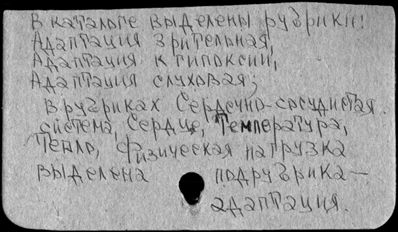 В каталоге выделены рубрики:
Адаптация зрительная,
Адаптация к гипоксии,
Адаптация слуховая;
в рубриках Сердечно-сосудистая
система, Сердце, Температура,
Тепло, Физическая нагрузка
выделена подрубрика —
адаптация.